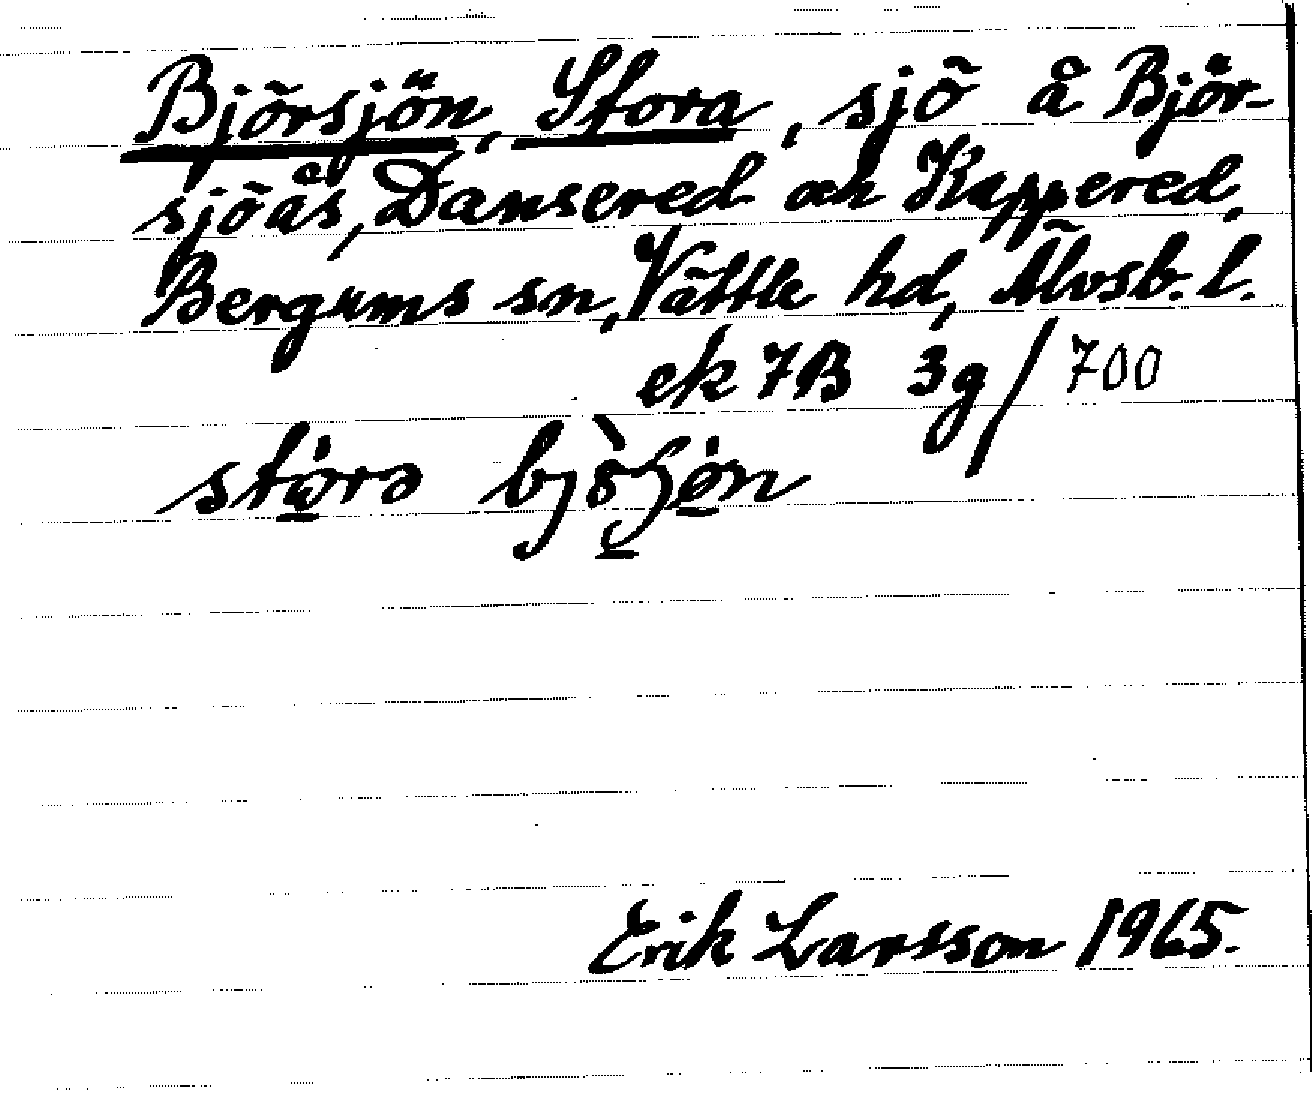 Björsjön, Stora, sjö å Björ-
sjöås, Dansered och Kappered,
Bergums sn, Vättle hd, Älvsb. l.
ek 7B 3g/700
Erik Larsson 1965.